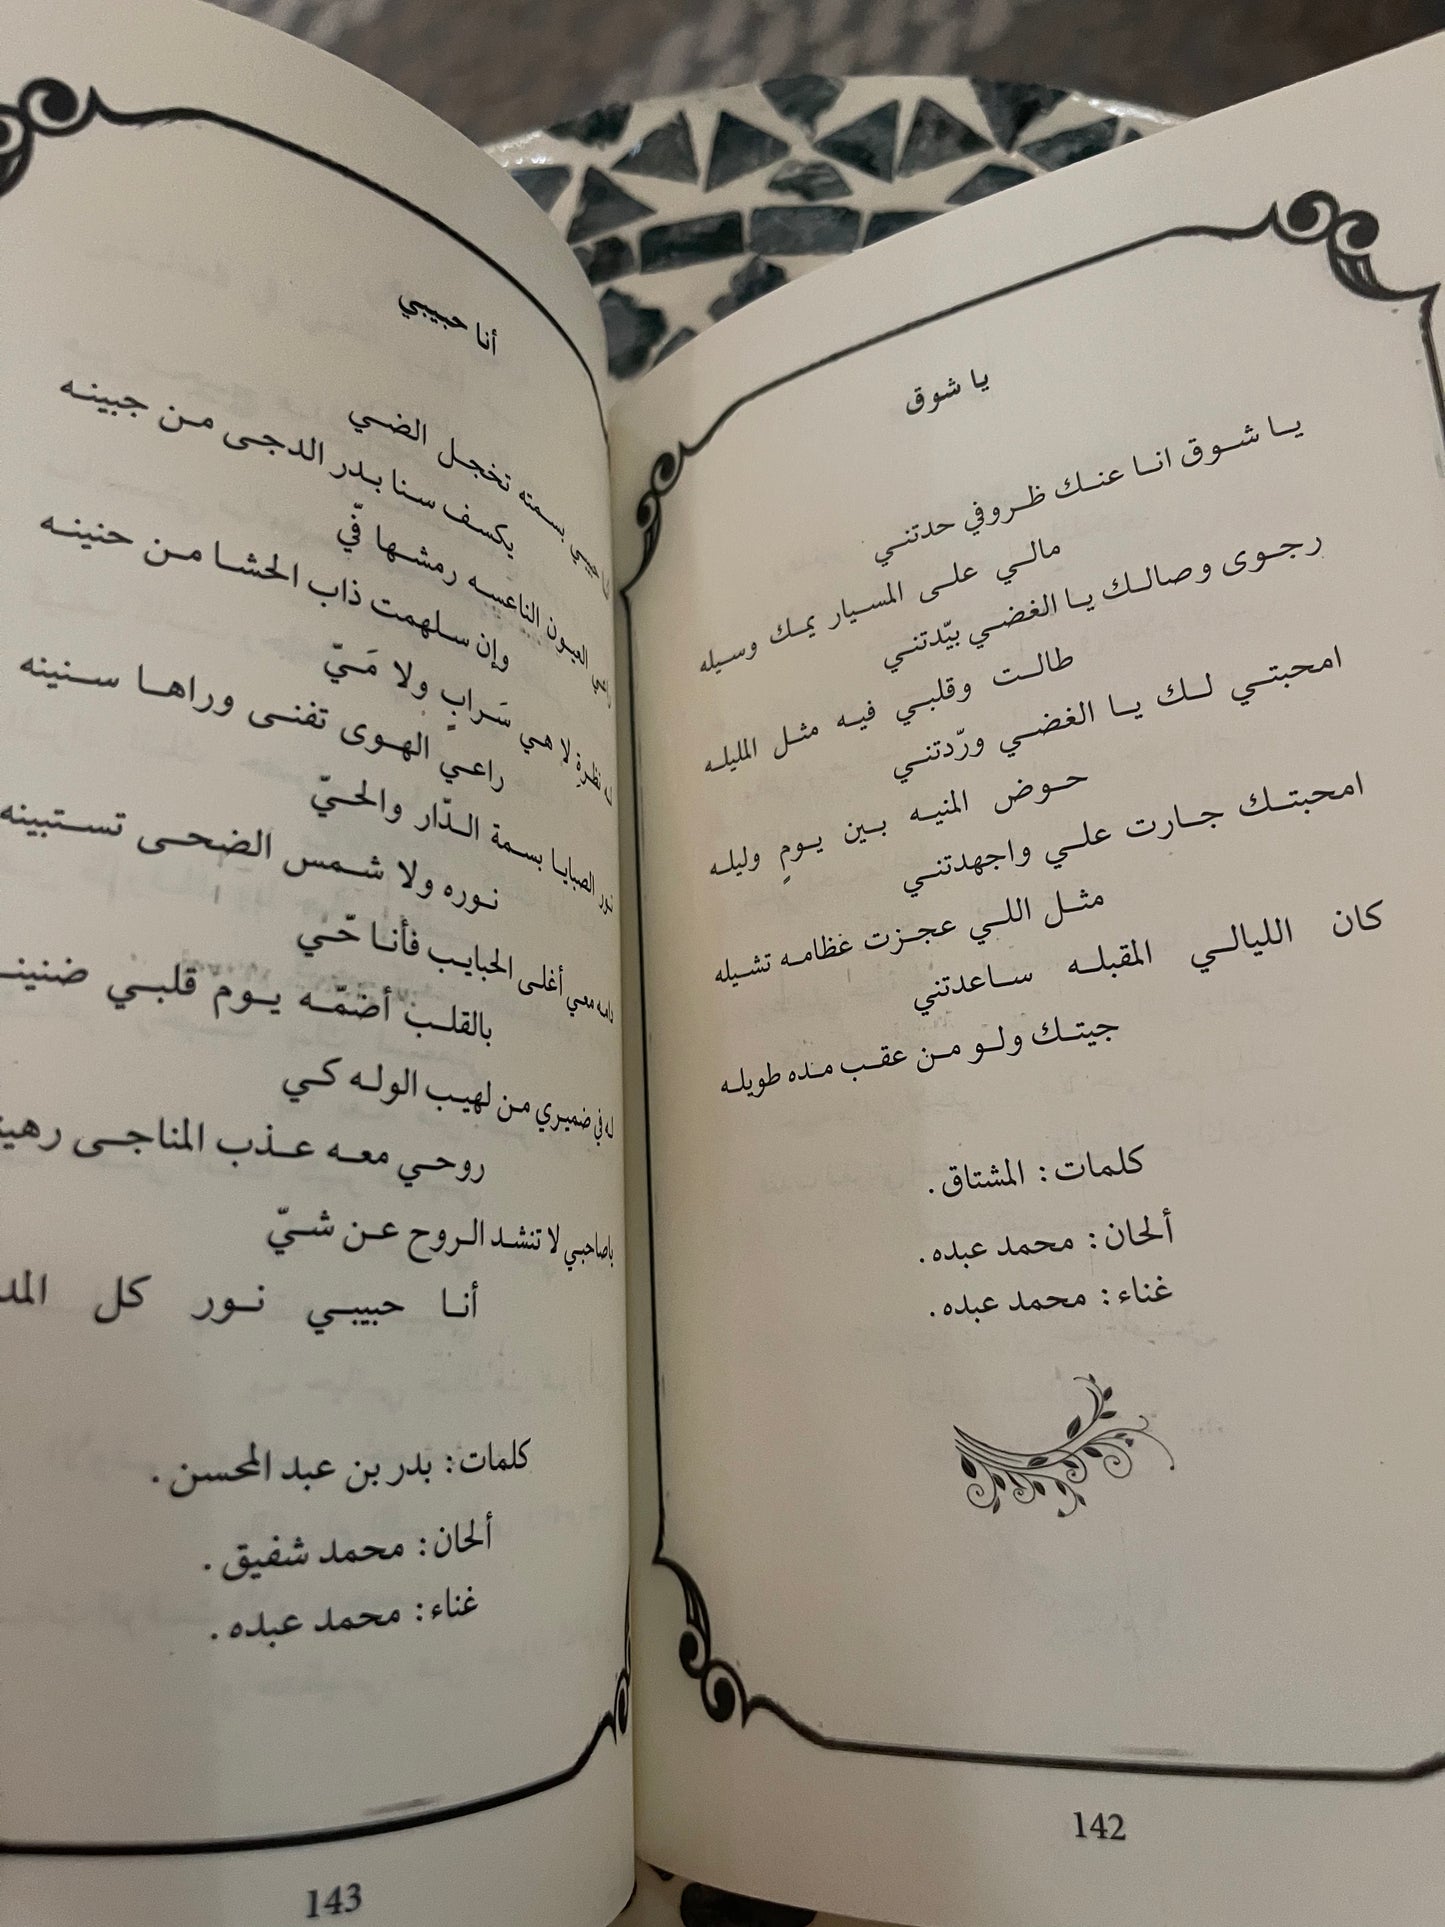 يا شوق
يا شوق انا عنك ظروفي حدتني
مالي على المسيار يمك وسيله
رجوى وصالك يا الغضي بيّدتني
طالت وقلبي فيه مثل المليله
امحبتي لك يا الغضي ورّدتني
حوض المنيه بين يومٍ وليله
امحبتك جارت علي واجهدتني
مثل اللي عجزت عظامه تشيله
كان الليالي المقبله ساعدتني
جيتك ولو من عقب مده طويله
كلمات: المشتاق.
ألحان: محمد عبده.
غناء: محمد عبده.
142
أنا حبيبي
حبيبي بسمته تخجل الضي
يكسف سنا بدر الدجى من جبينه
العيون الناعسه رمشها فّي
وإن سلهمت ذاب الحشا من حنينه
نظرةٍ لا هي سَرابٍ ولا مَيّ
راعي الهوى تفنى وراها سنينه
نور الصبايا بسمة الدّار والحيّ
نوره ولا شمس الضحى تستبينه
معي أغلى الحبايب فأنا حّي
بالقلب أضمّه يوم قلبي
له في ضميري من لهيب الوله كي
روحي معه عذب المناجى
ياصاحبي لا تنشد الروح عن شيّ
أنا حبيبي نور كل
كلمات: بدر بن عبد المحسن.
ألحان: محمد شفيق.
غناء: محمد عبده.
143